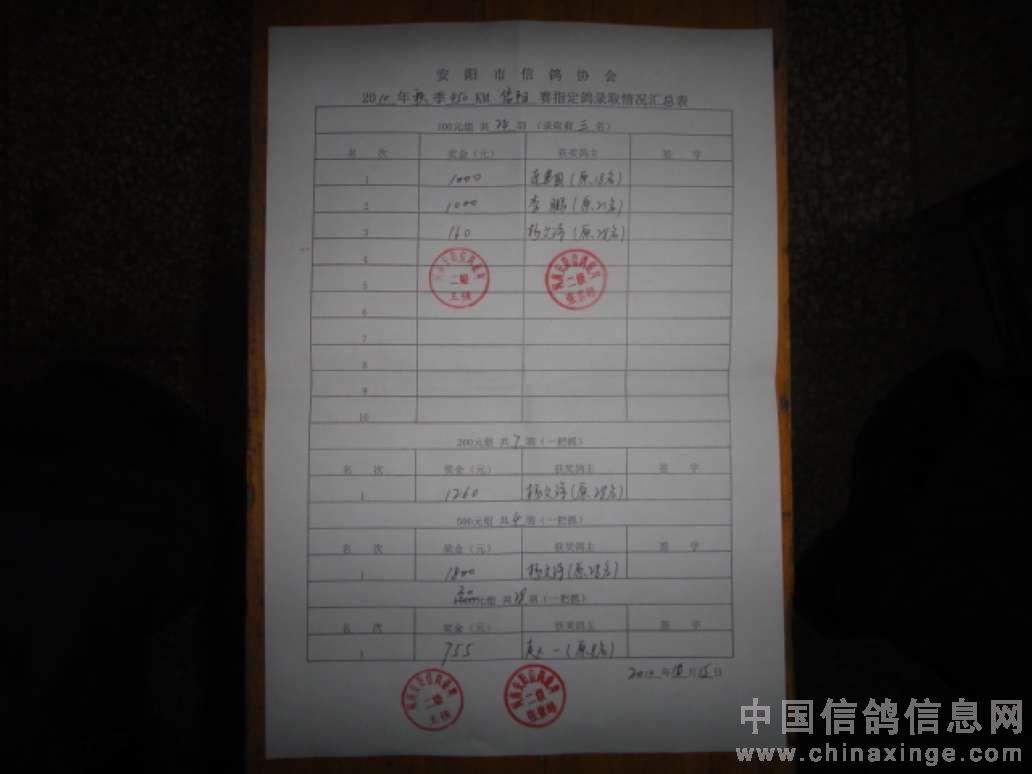 安阳市信鸽协会
2010年秋季450KM信阳赛指定鸽录取情况汇总表
100元组 共 羽 (录取前三名)
名 次 奖金(元) 获奖鸽主 签 字
1 1000 (原18名)
2 1000 李鹏(原21名)
3 160 杨文涛(原28名)
4
5
6
7
8
9
10
二级
王强
二级
200元组 共7羽(一把抓)
名 次 奖金(元) 获奖鸽主 签 字
1 1260 杨文涛(原28名)
500元组 共4羽(一把抓)
名 次 奖金(元) 获奖鸽主 签 字
1 1800 杨文涛(原28名)
元组 共 羽(一把抓)
名 次 奖金(元) 获奖鸽主 签 字
1 755 (原8名)
2010年 月 日
二级
王强
二级
中国信鸽信息网
www.chinaxinge.com